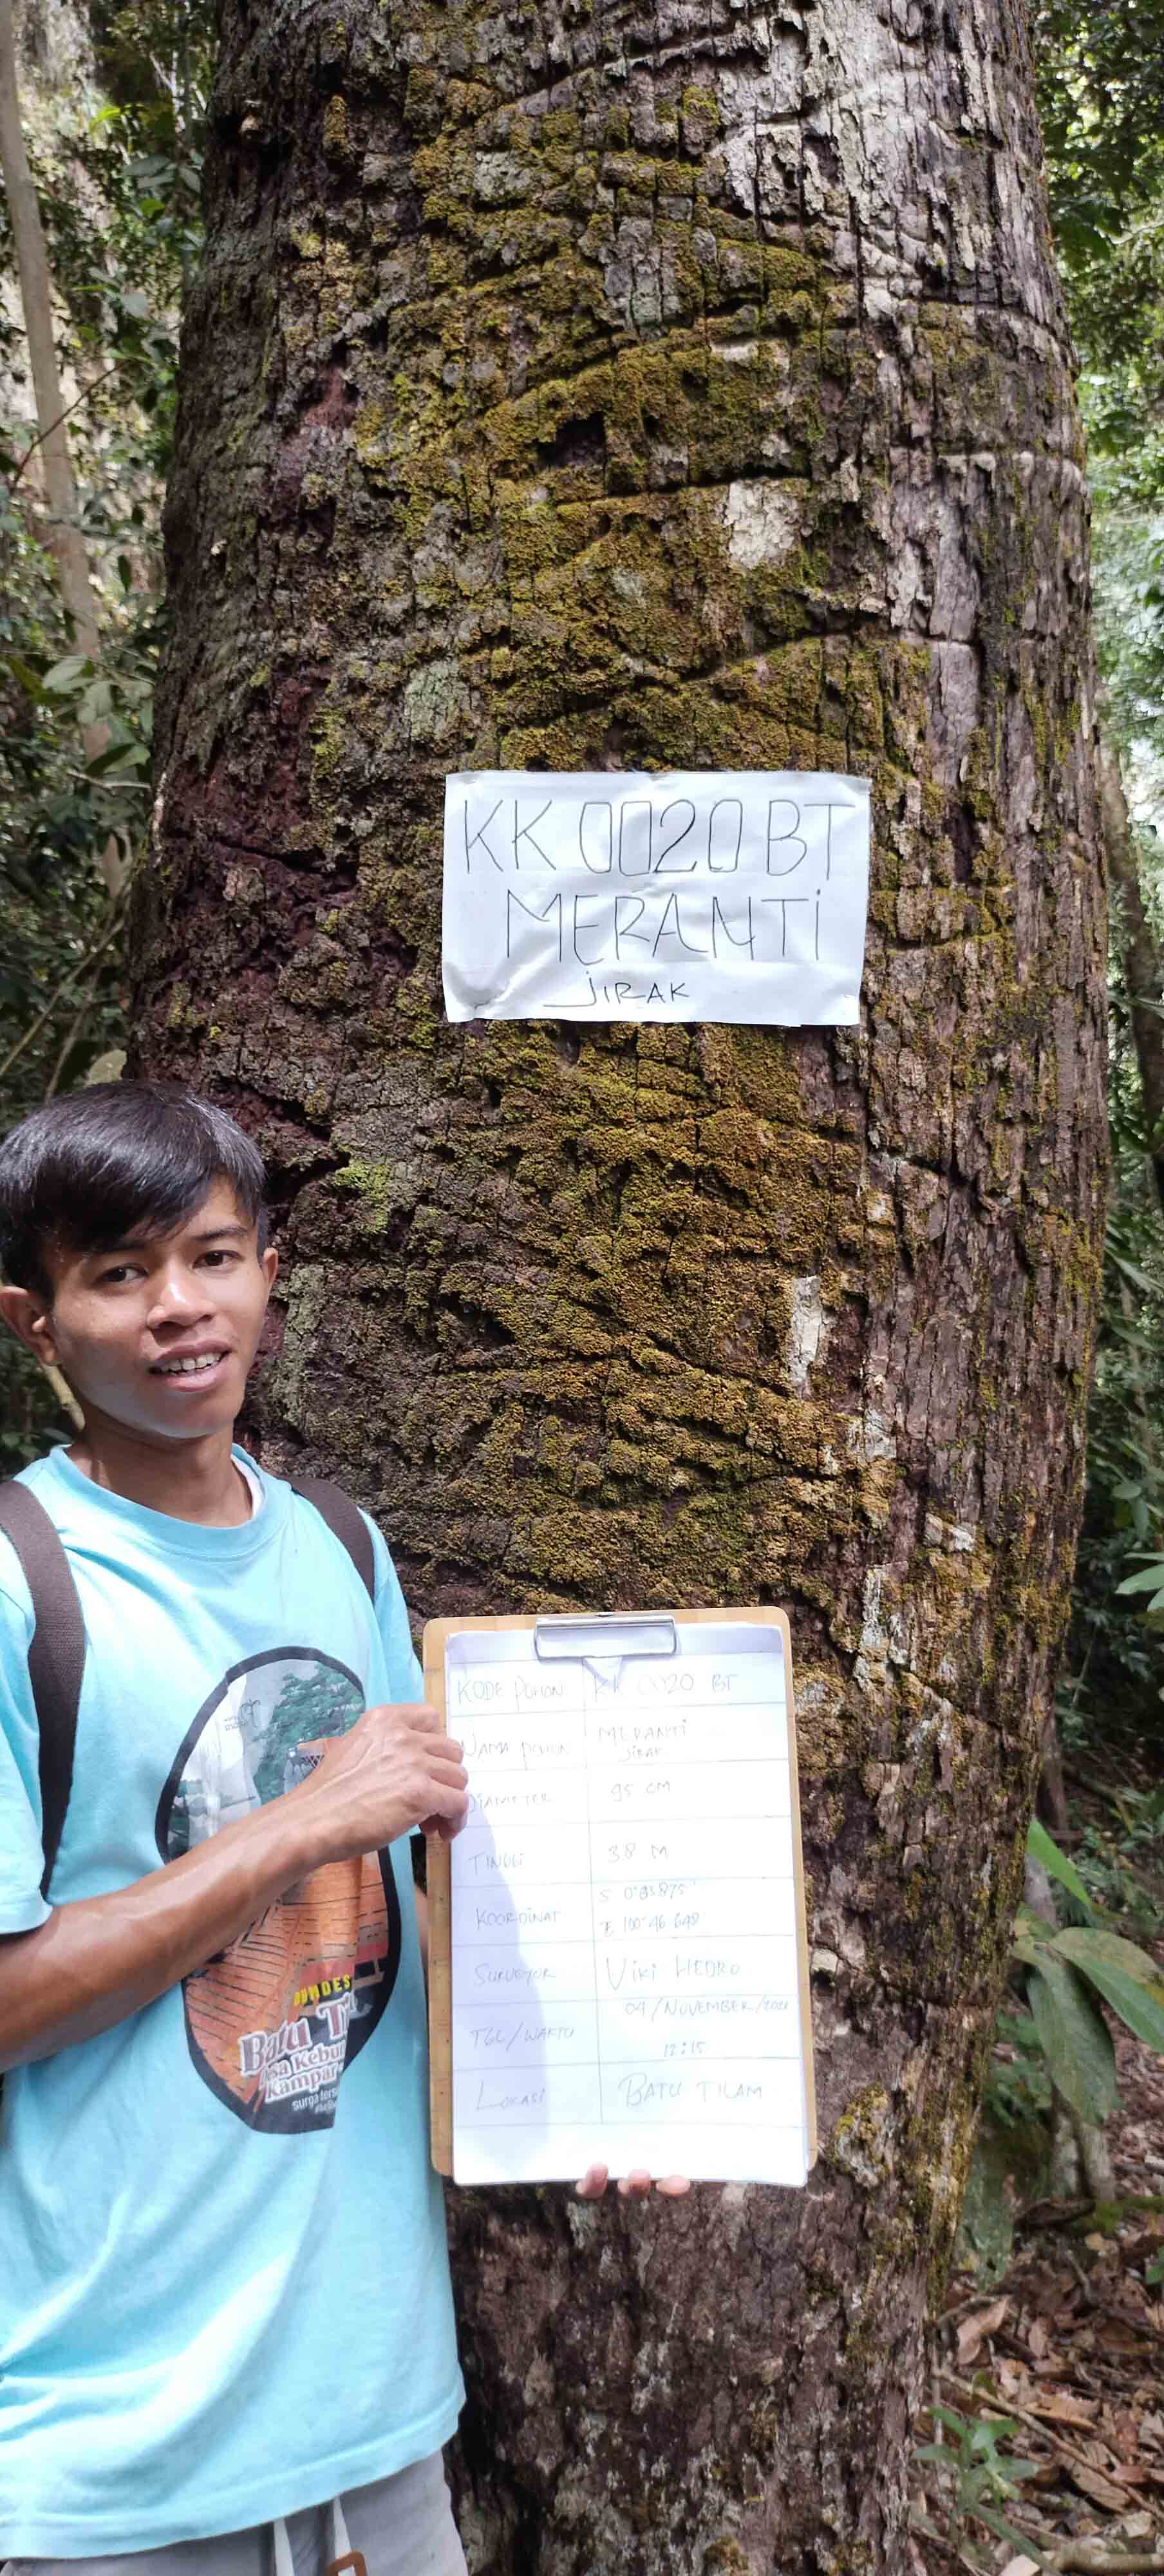 KK 0020 BT
MERANTI
JIRAK
KODE POHON KK 0020 BT
NAMA POHON MERANTI
JIRAK
DIAMETER 95 CM
TINGGI 38 M
KOORDINAT
E 100°46 648'
SURVEYOR VIKI HEDRO
04/NOVEMBER/2021
TGL/WAKTU
12:15
LOKASI BATU TILAM
BUMDES
Batu
Desa Kebun
Kampar
surga